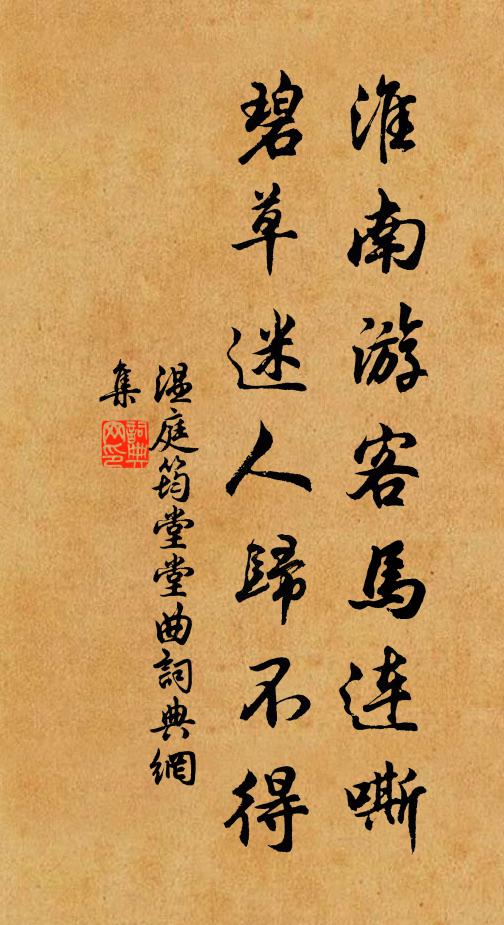 淮南游客馬連嘶
碧草迷人歸不得
温庭筠堂堂曲詞典網
集
詞典網印